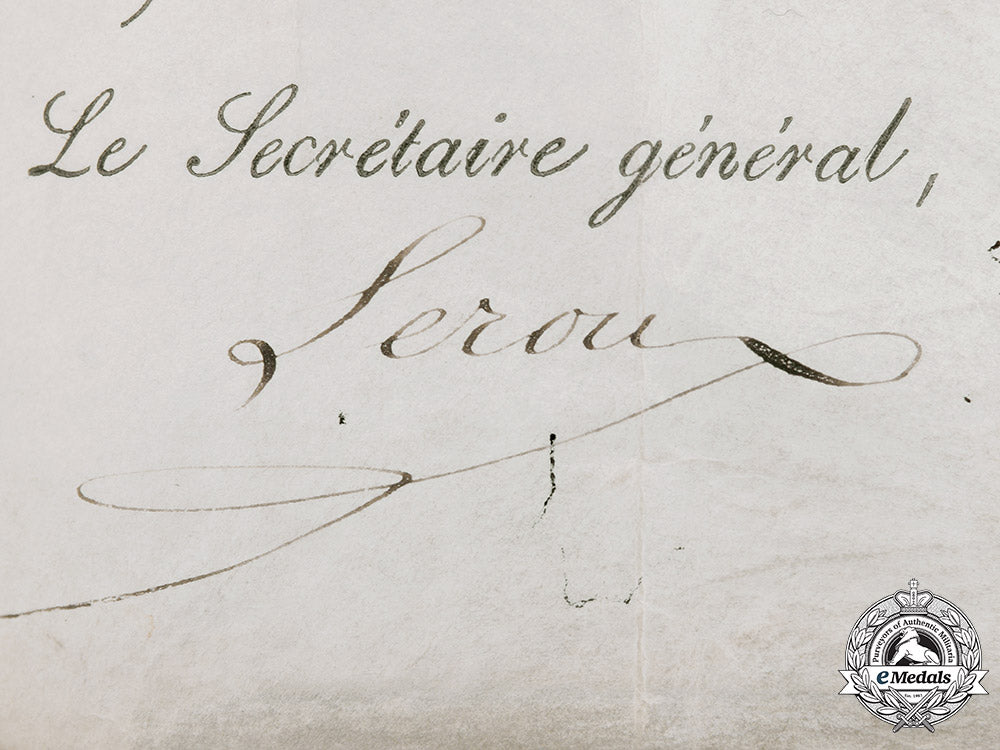 Le Secrétaire général,
Lerou
Purveyors of Authentic Militaria
eMedals